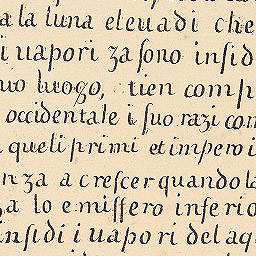 a la luna eleuadi che
i uapori za ſono inſid
uo luogo, tien comp
occidentale i ſuo razi con
i queli primi et impero i
nza a creſcer quando la
za lo emiſſero inferio
inſidi i uapori del aq